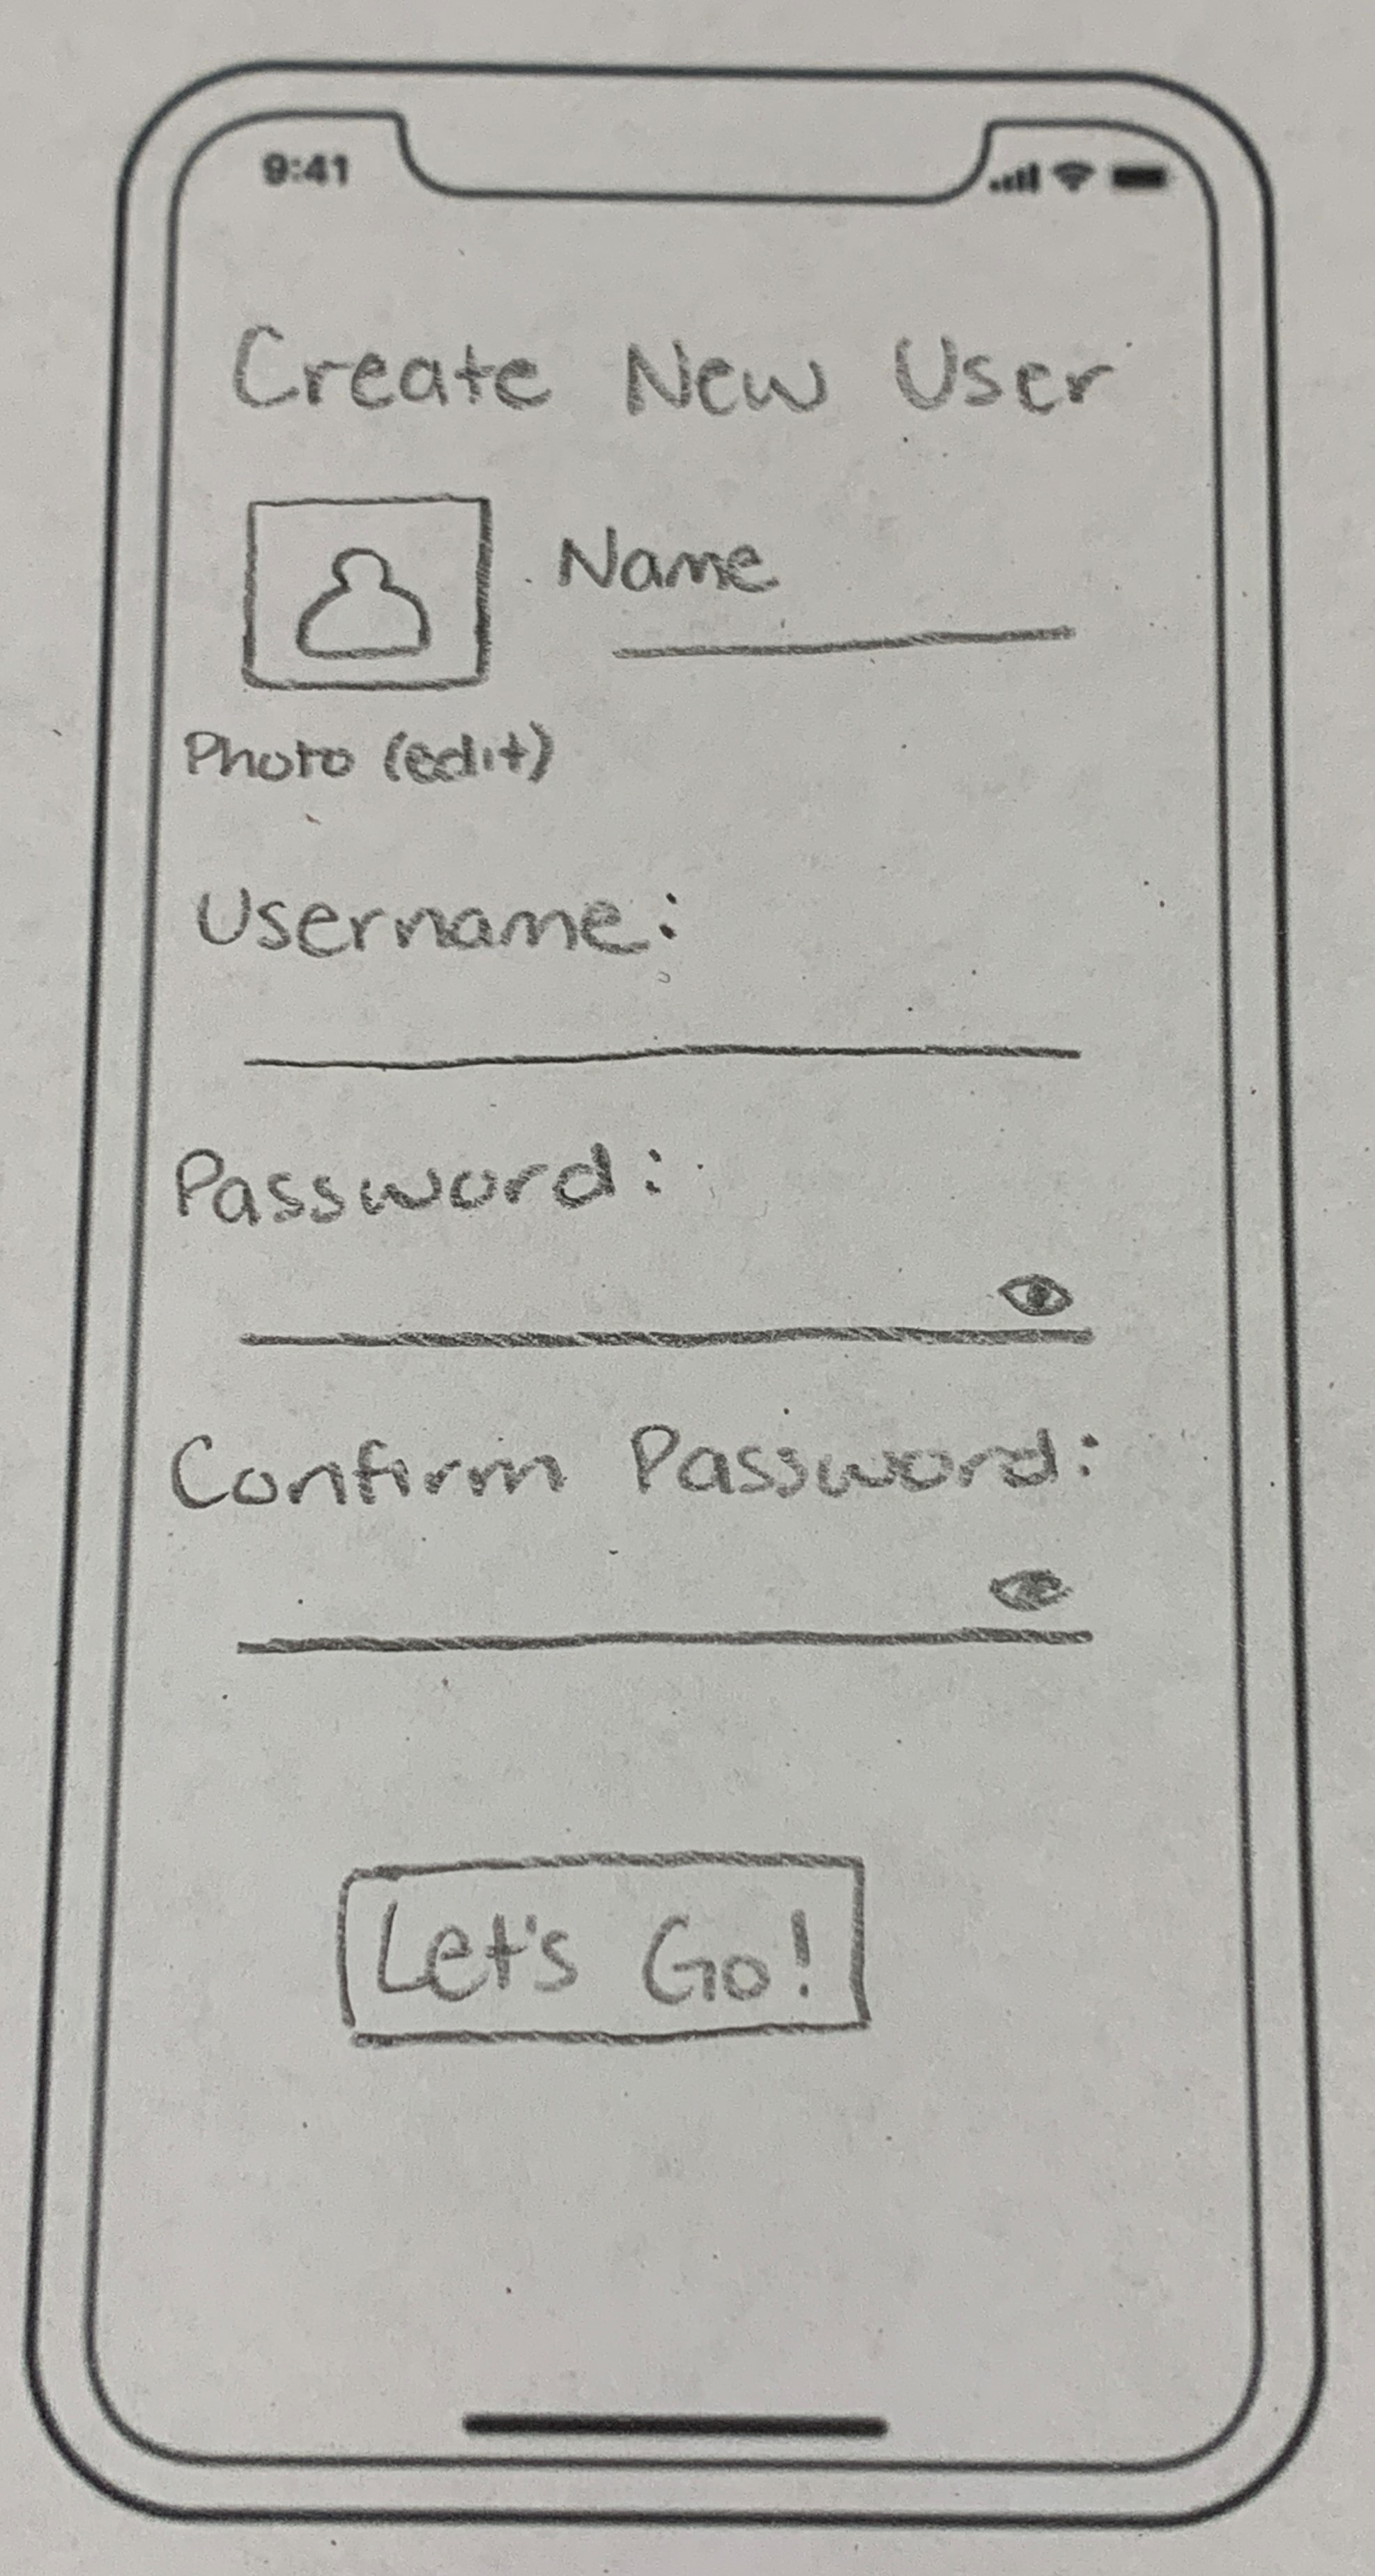 9:41
Create New User
Name
Photo (edit)
Username:
Password:
Confirm Password:
Let's Go!